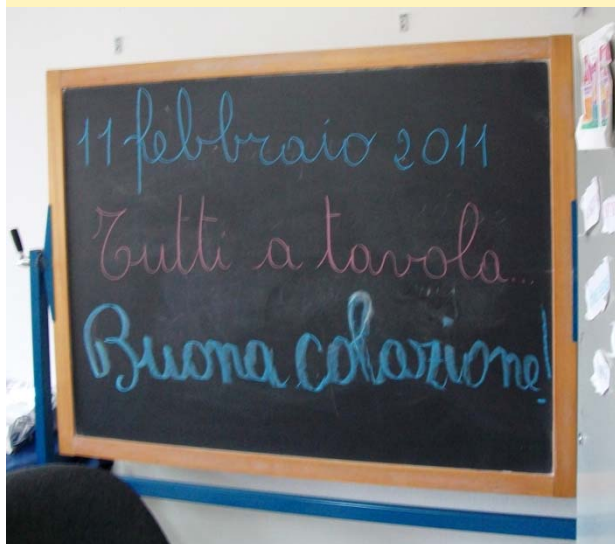 11 febbraio 2011
Tutti a tavola...
Buona colazione!